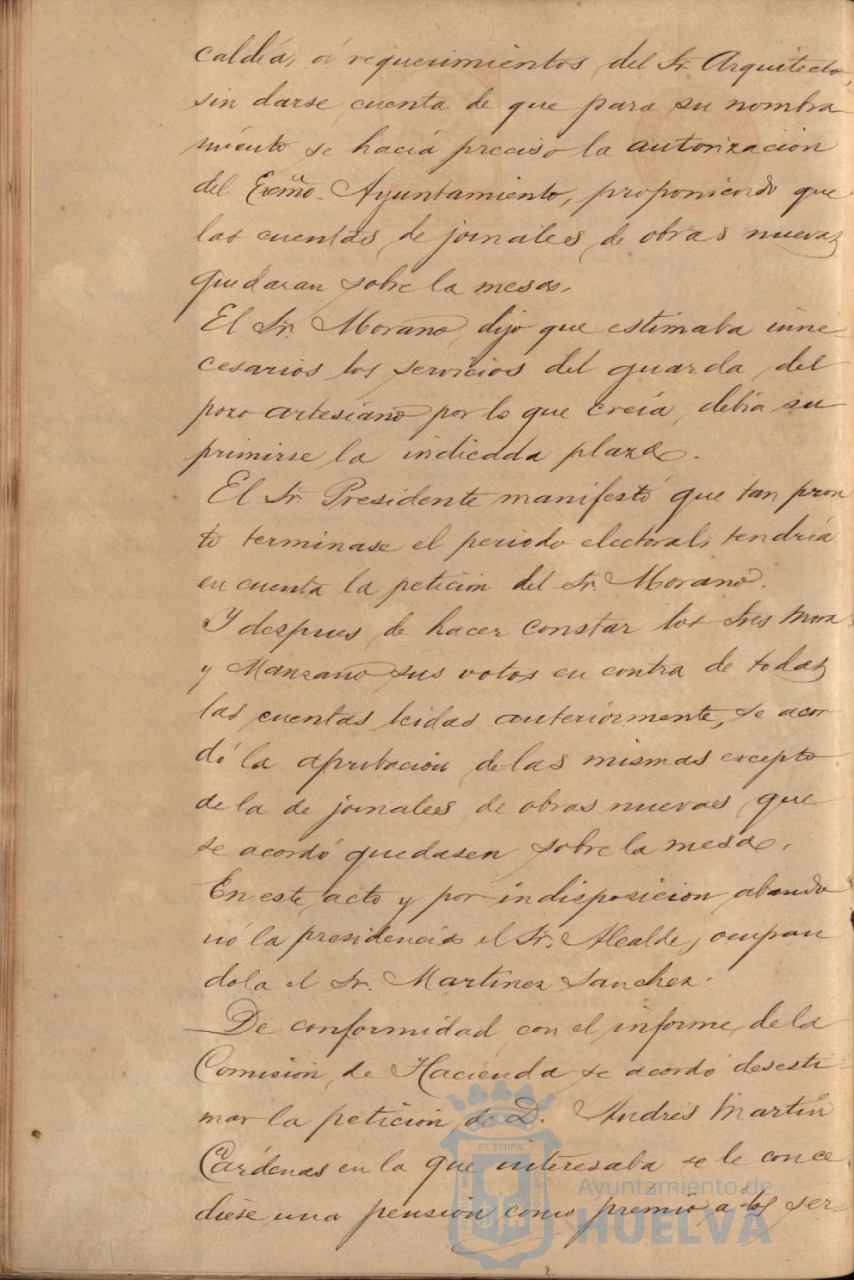 caldía, á requerimientos del Sr. Arquitecto,
sin darse cuenta de que para su nombra
miento se hacía preciso la autorizacion
del Excmo. Ayuntamiento, proponiendo que
las cuentas de jornales de obras nuevas
quedaran sobre la mesa.
El Sr. Morano, dijo que estimaba inne-
cesarios los servicios del guarda del
pozo artesiano por lo que creía, debia su
primirse la indicada plaza.
El Sr. Presidente manifestó que tan pron
to terminase el periodo electoral, tendría
en cuenta la petición del Sr. Morano.
Y despues de hacer constar los Sres Mora
y Manzano sus votos en contra de todas
las cuentas leidas anteriormente, se acor
dó la aprobacion de las mismas excepto
de la de jornales de obras nuevas que
se acordó quedasen sobre la mesa.
En este acto y por indisposicion abando
nó la presidencia el Sr. Alcalde, ocupan
dola el Sr. Martinez Sanchez.
De conformidad con el informe de la
Comisión de Hacienda se acordó desesti-
mar la petición de D. Andrés Martin
Cárdenas en la que interesaba se le conce
diese una pensión como premio a los ser-
EL TERRA
Ayuntamiento de
HUELVA